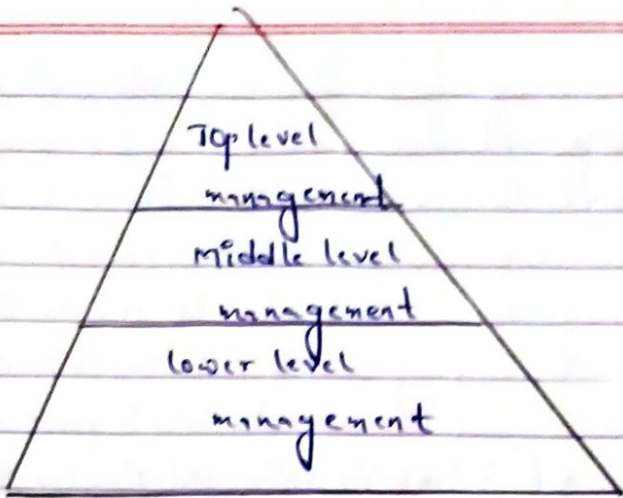 Top level
management
Middle level
management
lower level
management